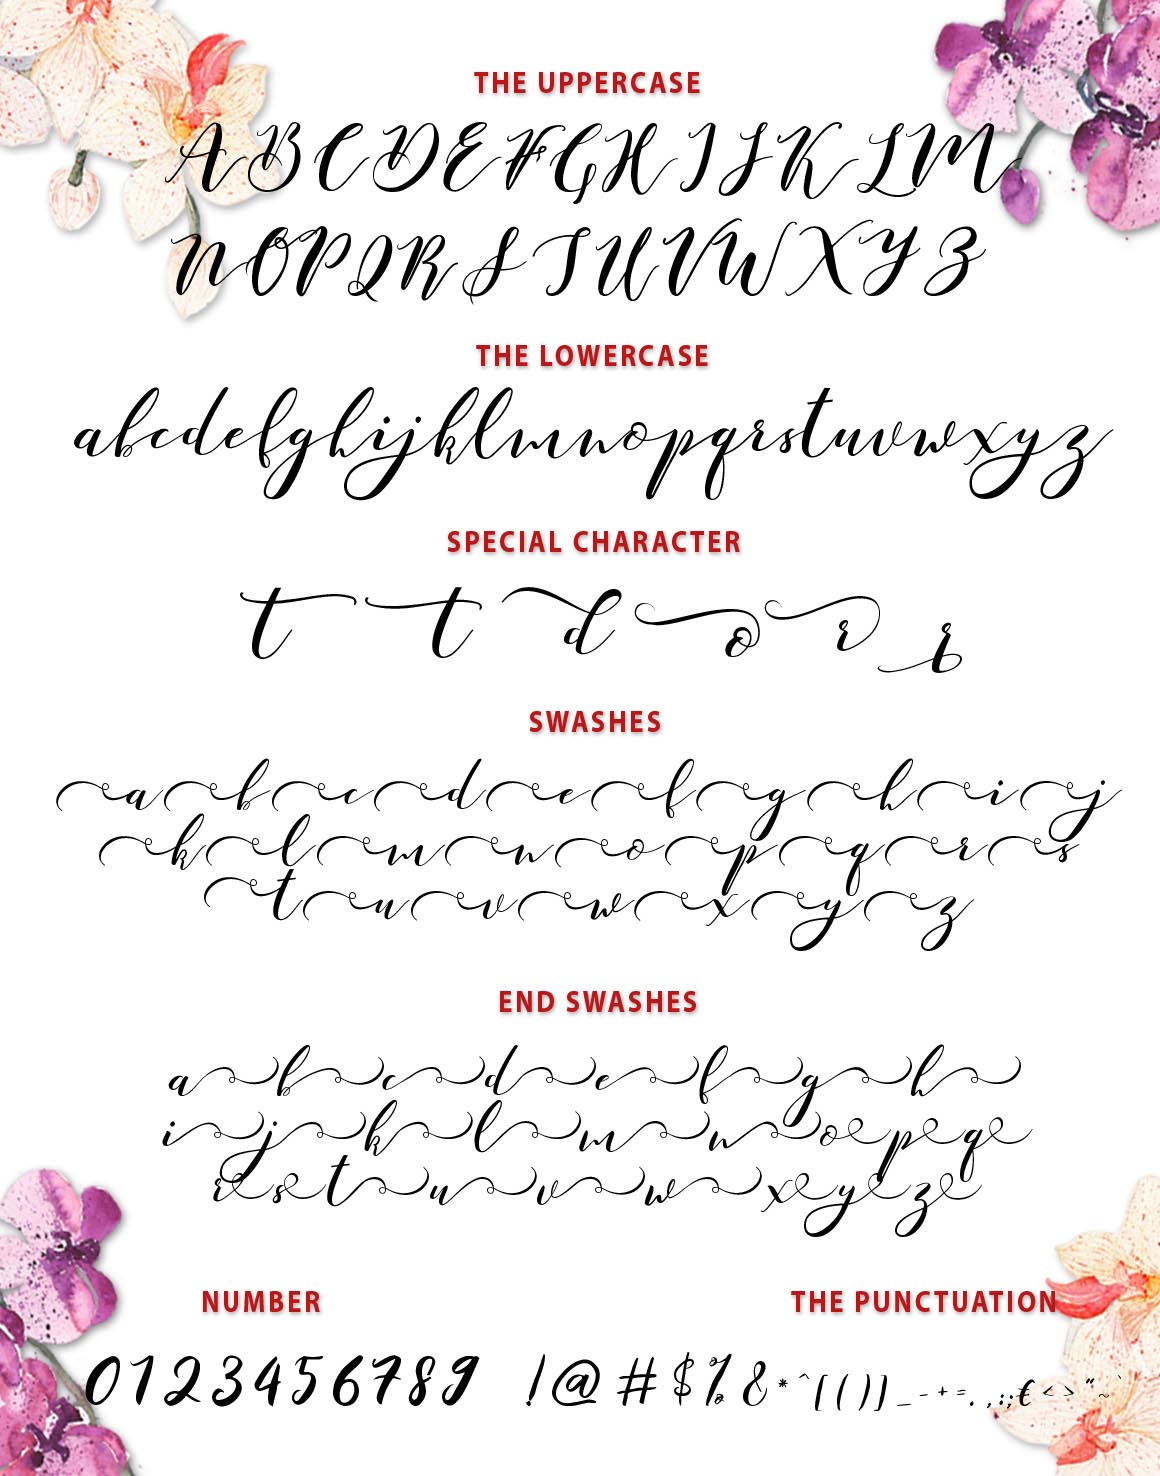 THE UPPERCASE
A B C D E F G H I J K L M
N O P Q R S T U V W X Y Z
THE LOWERCASE
a b c d e f g h i j k l m n o p q r s t u v w x y z
SPECIAL CHARACTER
t t d o r r
SWASHES
a b c d e f g h i j
k l m n o p q r s
t u v w x y z
END SWASHES
a b c d e f g h
i j k l m n o p q
r s t u v w x y z
NUMBER THE PUNCTUATION
0 1 2 3 4 5 6 7 8 9 ! @ # $ % & * ^ [ ( ) ] _ - + = . , : ; € < > " ~ `